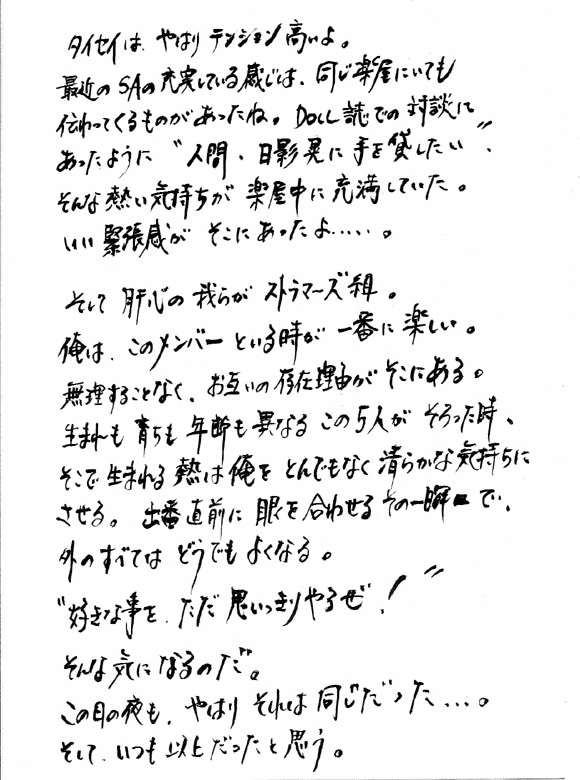 タイセイは、やはりテンション高いよ。
最近のSAの充実している感じは、同じ楽屋にいても
伝わってくるものがあったね。DOLL誌での対談に
あったように“人間・日影晃に手を貸したい”、
そんな熱い気持ちが楽屋中に充満していた。
いい緊張感がそこにあったよ‥‥‥。
そして肝心の我らがストラマーズ組。
俺は、このメンバーといる時が一番に楽しい。
無理することなく、お互いの存在理由がそこにある。
生まれも育ちも年齢も異なるこの5人がそろった時、
そこで生まれる熱は俺をとんでもなく清らかな気持ちに
させる。出番直前に眼を合わせるその一瞬で、
外のすべてはどうでもよくなる。
“好きな事を、ただ思いっきりやるぜ!”
そんな気になるのだ。
この日の夜も、やはりそれは同じだった‥‥。
そして、いつも以上だったと思う。